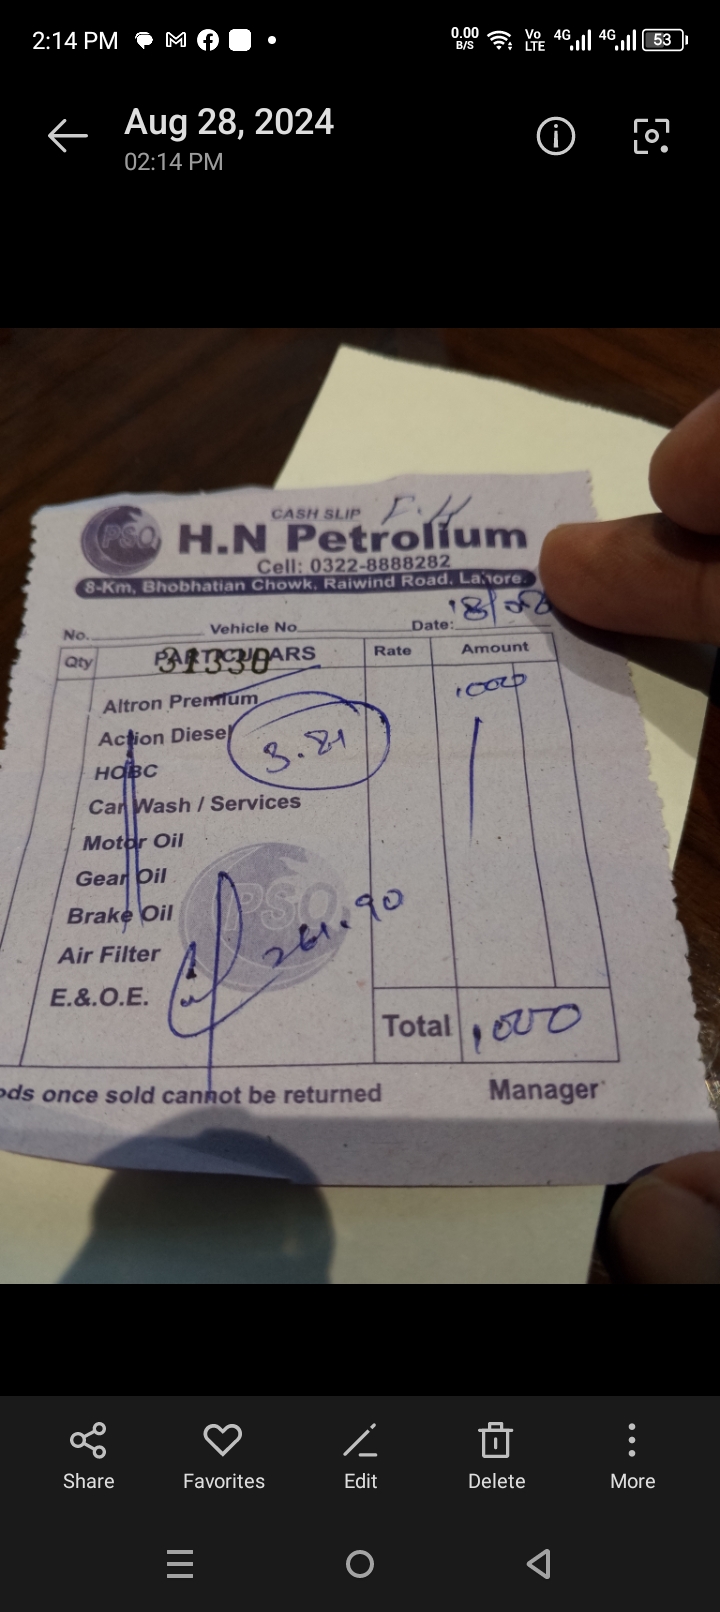 2:14 PM 0.00 B/S Vo LTE 4G 4G 53
Aug 28, 2024
02:14 PM
CASH SLIP F.H
PSO H.N Petrolium
Cell: 0322-8888282
8-Km, Bhobhatian Chowk, Raiwind Road, Lahore.
18/08
No. Vehicle No Date:
Qty PARTICULARS Rate Amount
31330
Altron Premium 1000
Action Diesel 3.81
HOBC
Car Wash / Services
Motor Oil
Gear Oil
PSO
Brake Oil
261.90
Air Filter
E.&.O.E.
Total 1000
ods once sold cannot be returned Manager
Share Favorites Edit Delete More